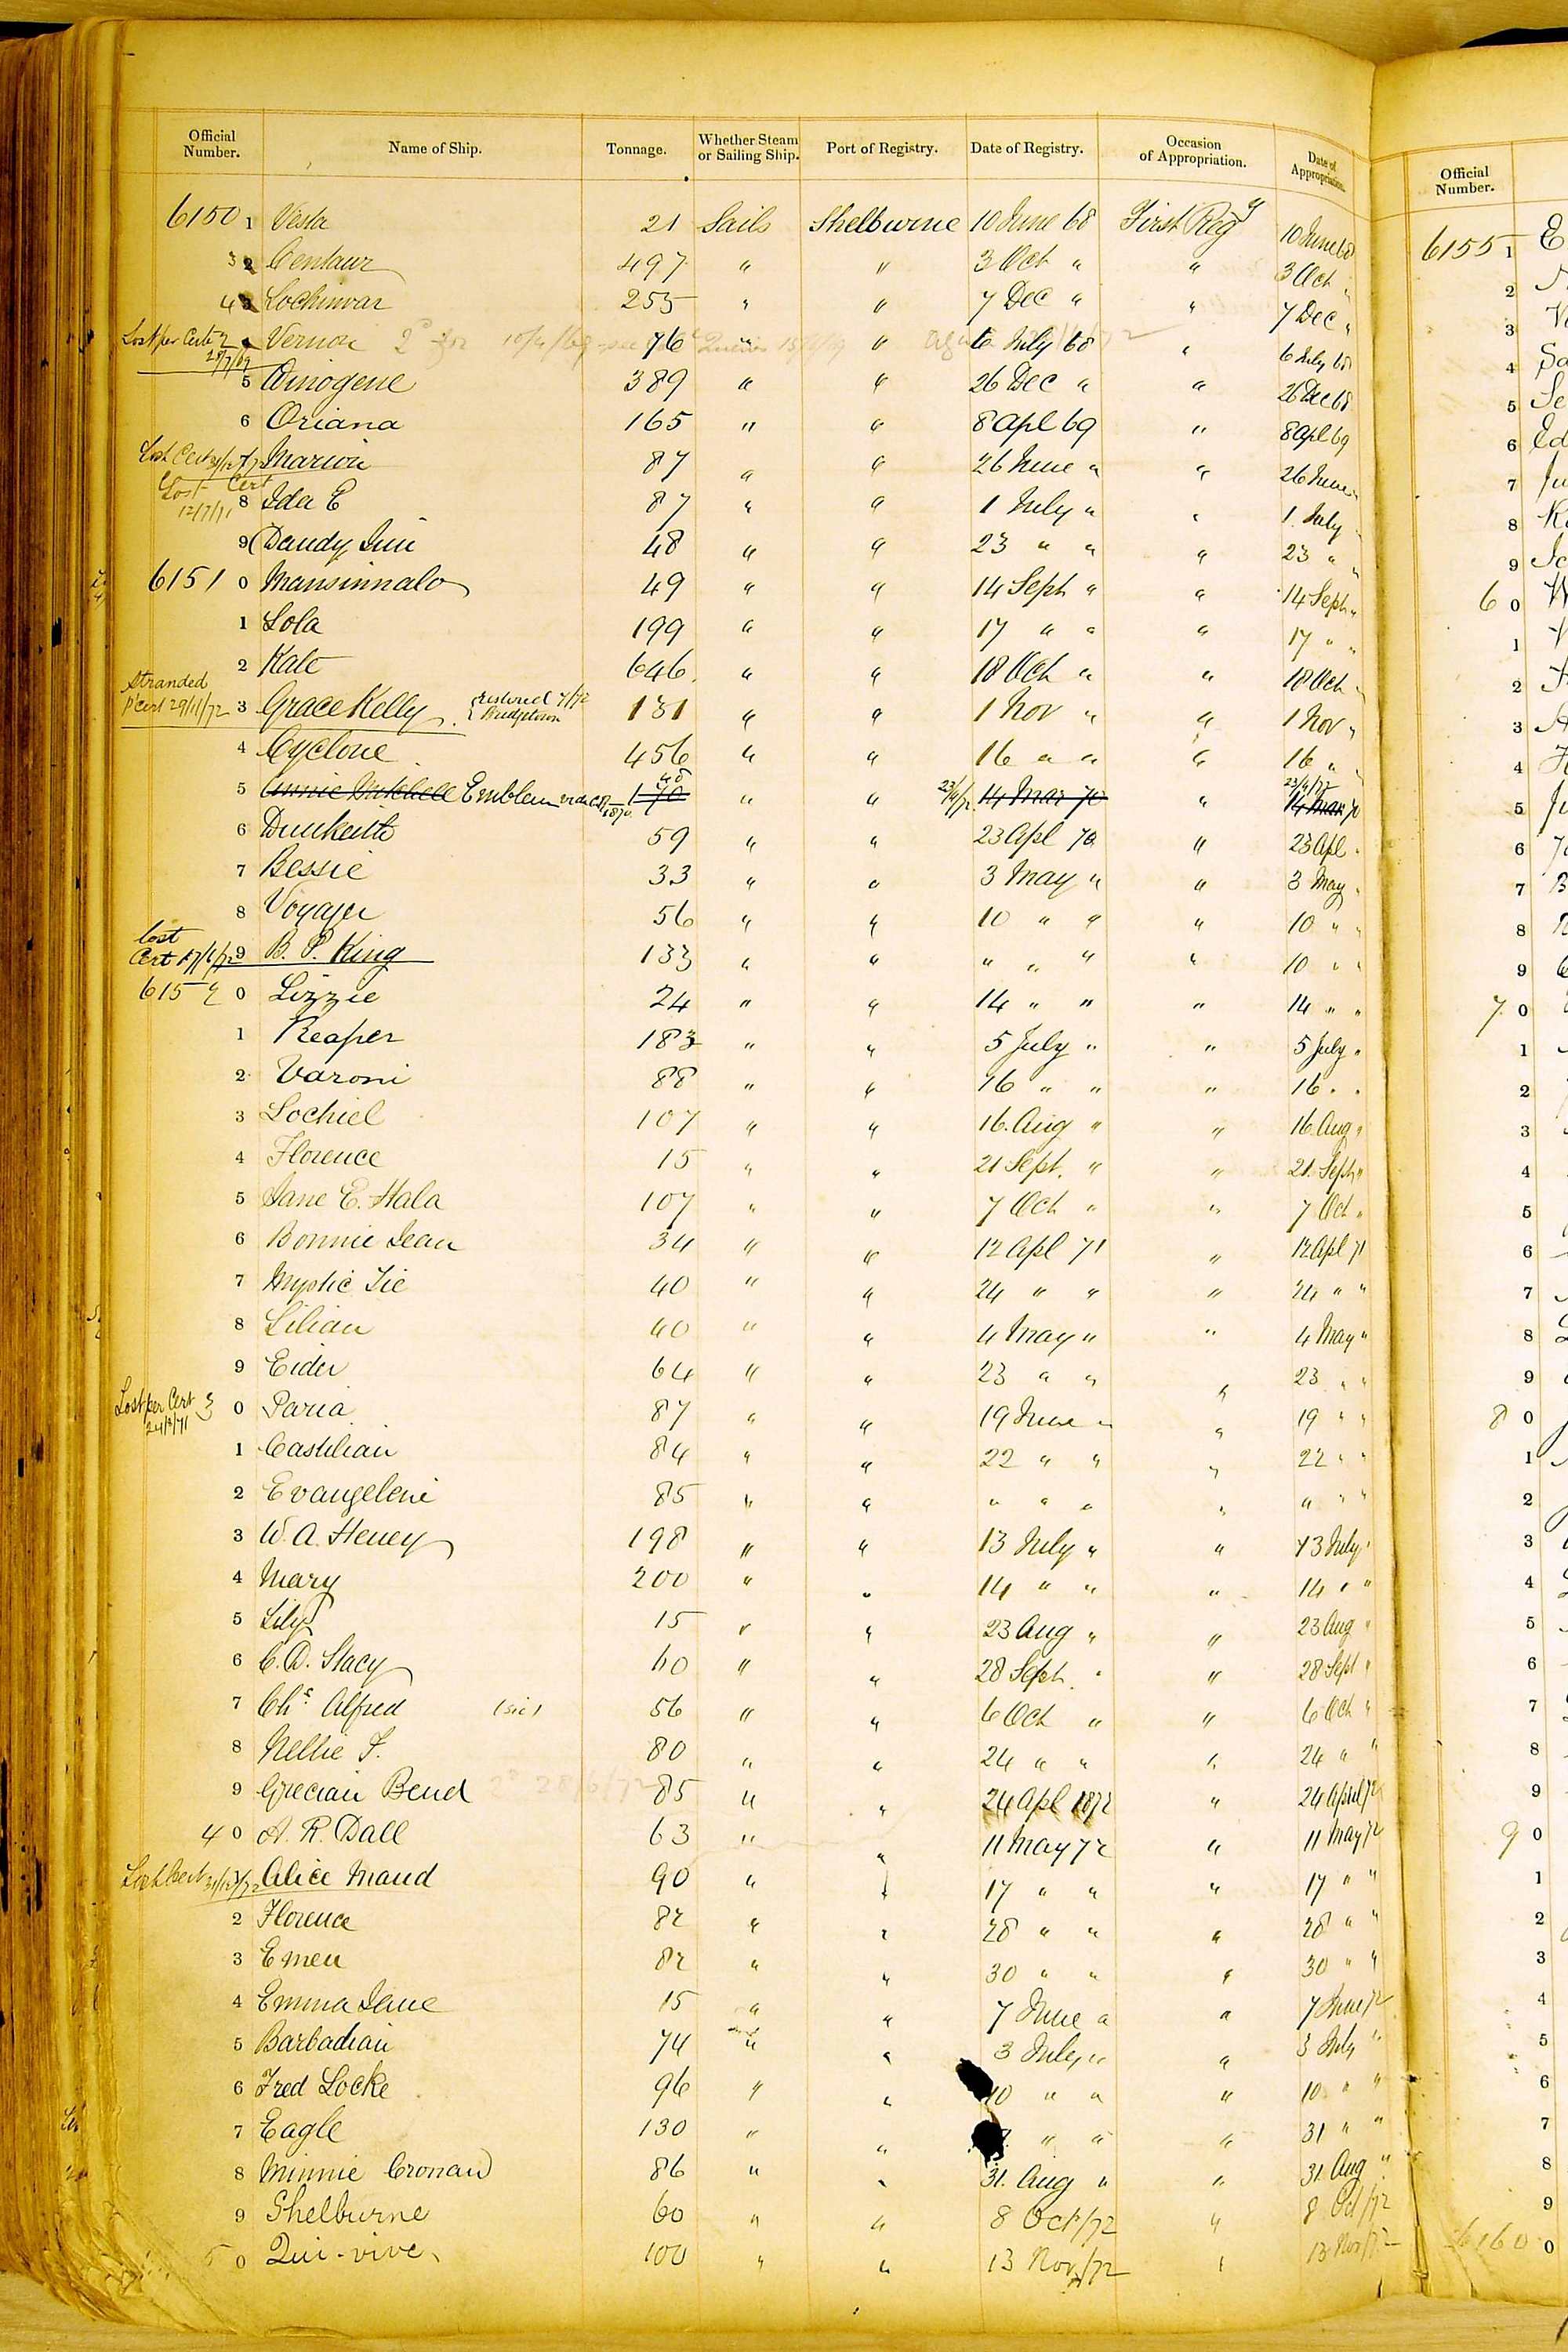 Official Number. Name of Ship. Tonnage. Whether Steam or Sailing Ship. Port of Registry. Date of Registry. Occasion of Appropriation. Date of Appropriation. Official Number.
6150 1 Vesta 21 Sails Shelburne 10 June 68 First Regy 10 June 68 6155 1
3 Centaur 497 " " 3 Oct " " 3 Oct " 2
4 Lochinvar 255 " " 7 Dec " " 7 Dec " 3
Lost per Certe 2 Vernon 76 " " 6 July 68 " 6 July 68 4
5 Oinogene 389 " " 26 Dec " " 26 Dec 68 5
6 Oriana 165 " " 8 Apl 69 " 8 Apl 69 6
Lost Cert 7 Marion 87 " " 26 June " " 26 June " 7
Lost Cert 12/7/71 8 Ida E 87 " " 1 July " " 1 July 8
9 Dandy Jim 48 " " 23 " " " 23 " " 9
6151 0 Mansinnalo 49 " " 14 Sept " " 14 Sept " 6 0
1 Lola 199 " " 17 " " " 17 " " 1
2 Kate 646 " " 18 Oct " " 18 Oct " 2
Stranded p Cert 29/11/72 3 Grace Kelly restored 7/72 Bridgetown 131 " " 1 Nov " " 1 Nov " 3
4 Cyclone 456 " " 16 " " " 16 " 4
5 Annie Mitchell Emblem 170 48 " " 23/4/72 14 Mar 70 " 23/4/72 14 Mar 70 5
6 Dunkeith 59 " " 23 Apl 70 " 23 Apl " 6
7 Bessie 33 " " 3 May " " 3 May " 7
8 Voyager 56 " " 10 " " " 10 " " 8
lost Cert 17/6/72 9 B. P. King 133 " " " " " " 10 " " 9
6152 0 Lizzie 24 " " 14 " " " 14 " " 7 0
1 Reaper 183 " " 5 July " " 5 July " 1
2 Varoni 88 " " 16 " " " 16 " " 2
3 Lochiel 107 " " 16 Aug " " 16 Aug " 3
4 Florence 15 " " 21 Sept. " " 21 Sept " 4
5 Jane E. Hala 107 " " 7 Oct " " 7 Oct " 5
6 Bonnie Jean 34 " " 12 Apl 71 " 12 Apl 71 6
7 Mystic Tie 40 " " 24 " " " 24 " " 7
8 Lilian 40 " " 4 May " " 4 May " 8
9 Eider 64 " " 23 " " " 23 " " 9
Lost per Cert 3 0 Paria 87 " " 19 June " " 19 " " 8 0
1 Castilian 84 " " 22 " " " 22 " " 1
2 Evangeleni 85 " " " " " " " " " 2
3 W. A. Heney 198 " " 13 July " " 13 July " 3
4 Mary 200 " " 14 " " " 14 " " 4
5 Lily 15 " " 23 Aug " " 23 Aug " 5
6 C. D. Stacy 40 " " 28 Sept. " " 28 Sept " 6
7 Chs. Alfred (sic) 56 " " 6 Oct " " 6 Oct " 7
8 Nellie F. 80 " " 24 " " " 24 " " 8
9 Grecian Bend 85 " " 24 Apl 1872 " 24 April 72 9
4 0 A. R. Dall 63 " " 11 May 72 " 11 May 72 9 0
Lost Cert Alice Maud 90 " " 17 " " " 17 " " 1
2 Florence 82 " " 28 " " " 28 " " 2
3 Emeu 82 " " 30 " " " 30 " " 3
4 Emma Jane 15 " " 7 June " " 7 June 72 4
5 Barbadian 74 " " 3 July " " 3 July " 5
6 Fred Locke 96 " " 10 " " " 10 " " 6
7 Eagle 130 " " " " " 31 " " 7
8 Minnie Cronan 86 " " 31 Aug " " 31 Aug " 8
9 Shelburne 60 " " 8 Oct/72 " 8 Oct/72 9
5 0 Qui-vive 100 " " 13 Nov/72 " 13 Nov/72 6160 0